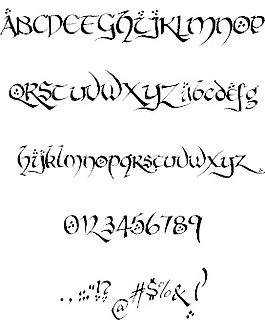 ABCDEFGHIJKLMNOP
QRSTUVWXYZabcdefg
hijklmnopqrstuvwxyz
0123456789
.,:;"!?@#$%&/